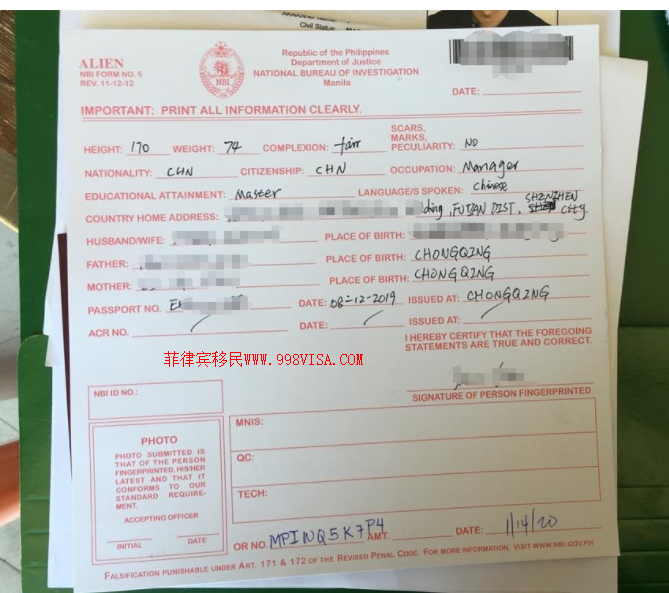 Civil Status:
ALIEN
NBI FORM NO. 5
REV. 11-12-12
NBI
Republic of the Philippines
Department of Justice
NATIONAL BUREAU OF INVESTIGATION
Manila
DATE:
IMPORTANT: PRINT ALL INFORMATION CLEARLY.
HEIGHT: 170 WEIGHT: 74 COMPLEXION: fair SCARS, MARKS, PECULIARITY: NO
NATIONALITY: CHN CITIZENSHIP: CHN OCCUPATION: Manager
EDUCATIONAL ATTAINMENT: Master LANGUAGE/S SPOKEN: Chinese
COUNTRY HOME ADDRESS: lding, FUTIAN DIST, SHENZHEN City.
HUSBAND/WIFE: PLACE OF BIRTH:
FATHER: PLACE OF BIRTH: CHONGQING
MOTHER: PLACE OF BIRTH: CHONGQING
PASSPORT NO. E DATE: 08-12-2019 ISSUED AT: CHONGQING
ACR NO. / DATE: / ISSUED AT: /
I HEREBY CERTIFY THAT THE FOREGOING
STATEMENTS ARE TRUE AND CORRECT.
菲律宾移民WWW.998VISA.COM
SIGNATURE OF PERSON FINGERPRINTED
NBI ID NO.:
PHOTO
PHOTO SUBMITTED IS
THAT OF THE PERSON
FINGERPRINTED, HIS/HER
LATEST AND THAT IT
CONFORMS TO OUR
STANDARD REQUIRE-
MENT.
ACCEPTING OFFICER
INITIAL DATE
MNIS:
QC:
TECH:
OR NO. MPINQ5K7P4 AMT. DATE: 1/14/20
FALSIFICATION PUNISHABLE UNDER ART. 171 & 172 OF THE REVISED PENAL CODE. FOR MORE INFORMATION, VISIT WWW.NBI.GOV.PH